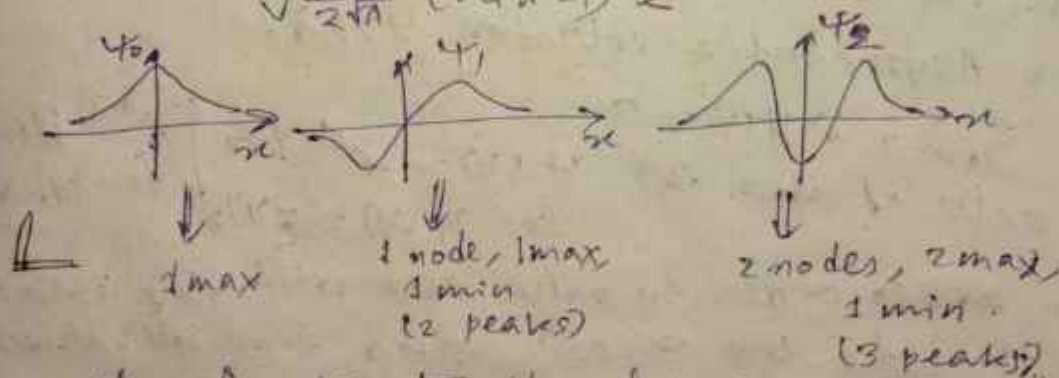 ψ₀ ψ₁ ψ₂
x x x
1 max
1 node, 1max,
1 min
(2 peaks)
2 nodes, 2 max,
1 min.
(3 peaks)